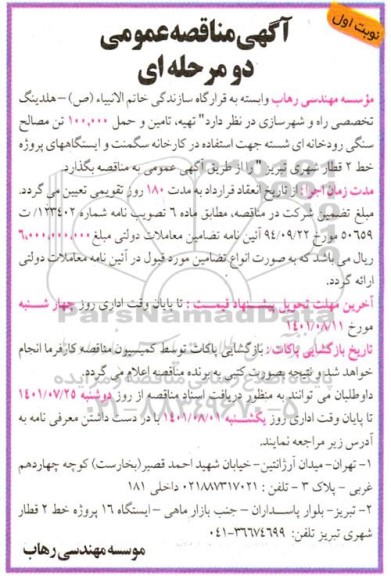 نوبت اول
آگهی مناقصه عمومی
دو مرحله ای
مؤسسه مهندسی رهاب وابسته به قرارگاه سازندگی خاتم الانبیاء (ص) –هلدینگ
تخصصی راه و شهرسازی در نظر دارد" تهیه، تامین و حمل ۱۰۰,۰۰۰ تن مصالح
سنگی رودخانه ای شسته جهت استفاده در کارخانه سگمنت و ایستگاههای پروژه
خط ۲ قطار شهری تبریز" را از طریق آگهی عمومی به مناقصه بگذارد.
مدت زمان اجرا: از تاریخ انعقاد قرارداد به مدت ۱۸۰ روز تقویمی تعیین می گردد.
مبلغ تضمین شرکت در مناقصه، مطابق ماده ۶ تصویب نامه شماره ۱۲۳۴۰۲/ ت
۵۰۶۵۹ مورخ ۹۴/۰۹/۲۲ آئین نامه تضامین معاملات دولتی مبلغ ۶,۰۰۰,۰۰۰,۰۰۰
ریال می باشد که به صورت انواع تضامین مورد قبول در آئین نامه معاملات دولتی
ارائه گردد.
آخرین مهلت تحویل پیشنهاد قیمت : تا پایان وقت اداری روز چهار شنبه
مورخ ۱۴۰۱/۰۸/۱۱
تاریخ بازگشایی پاکات: بازگشایی پاکات توسط کمیسیون مناقصه کارفرما انجام
خواهد شد و نتیجه بصورت کتبی به برنده مناقصه اعلام می گردد.
داوطلبان می توانند به منظور دریافت اسناد مناقصه از روز دوشنبه ۱۴۰۱/۰۷/۲۵
تا پایان وقت اداری روز یکشنبه ۱۴۰۱/۰۸/۰۱ با در دست داشتن معرفی نامه به
آدرس زیر مراجعه نمایند.
۱- تهران- میدان آرژانتین- خیابان شهید احمد قصیر(بخارست) کوچه چهاردهم
غربی - پلاک ۳ - تلفن : ۰۲۱۸۸۷۳۱۷۰۲۱ داخلی ۱۸۱
۲- تبریز- بلوار پاسداران - جنب بازار ماهی - ایستگاه ۱۶ پروژه خط ۲ قطار
شهری تبریز تلفن: ۳۶۶۷۴۶۹۹-۰۴۱
موسسه مهندسی رهاب
ParsNamadData